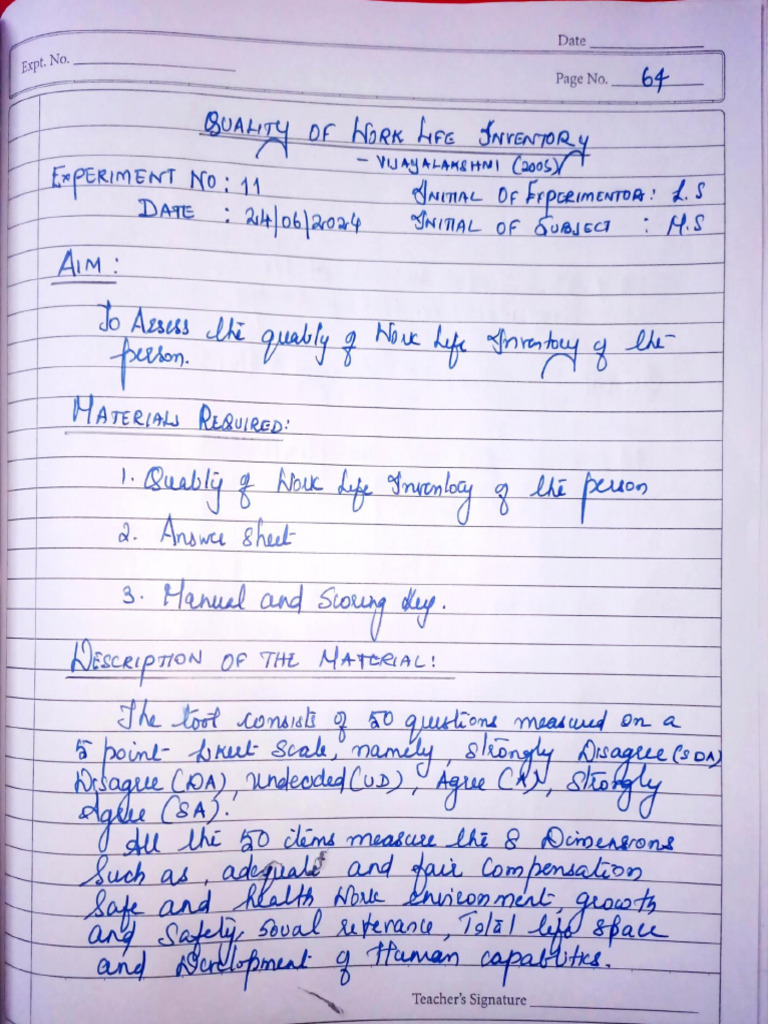 Date
Expt. No.
Page No. 64
QUALITY OF WORK LIFE INVENTORY
- VIJAYALAKSHNI (2005)
EXPERIMENT NO : 11
INITIAL OF EXPERIMENTOR : L.S
DATE : 24/06/2024
INITIAL OF SUBJECT : M.S
AIM :
To Assess the quality of Work Life Inventory of the
person.
MATERIALS REQUIRED:
1. Quality of Work Life Inventory of the person
2. Answer Sheet
3. Manual and Scoring Key.
DESCRIPTION OF THE MATERIAL:
The tool consists of 50 questions measured on a
5 point Likert Scale, namely, Strongly Disagree (SDA)
Disagree (DA), Undecided (UD), Agree (A), Strongly
Agree (SA).
All the 50 items measure the 8 Dimensions
Such as, adequate and fair compensation
Safe and health work environment, growth
and Safety, Soual referance, Total life space
and Development of Human capablites.
Teacher's Signature